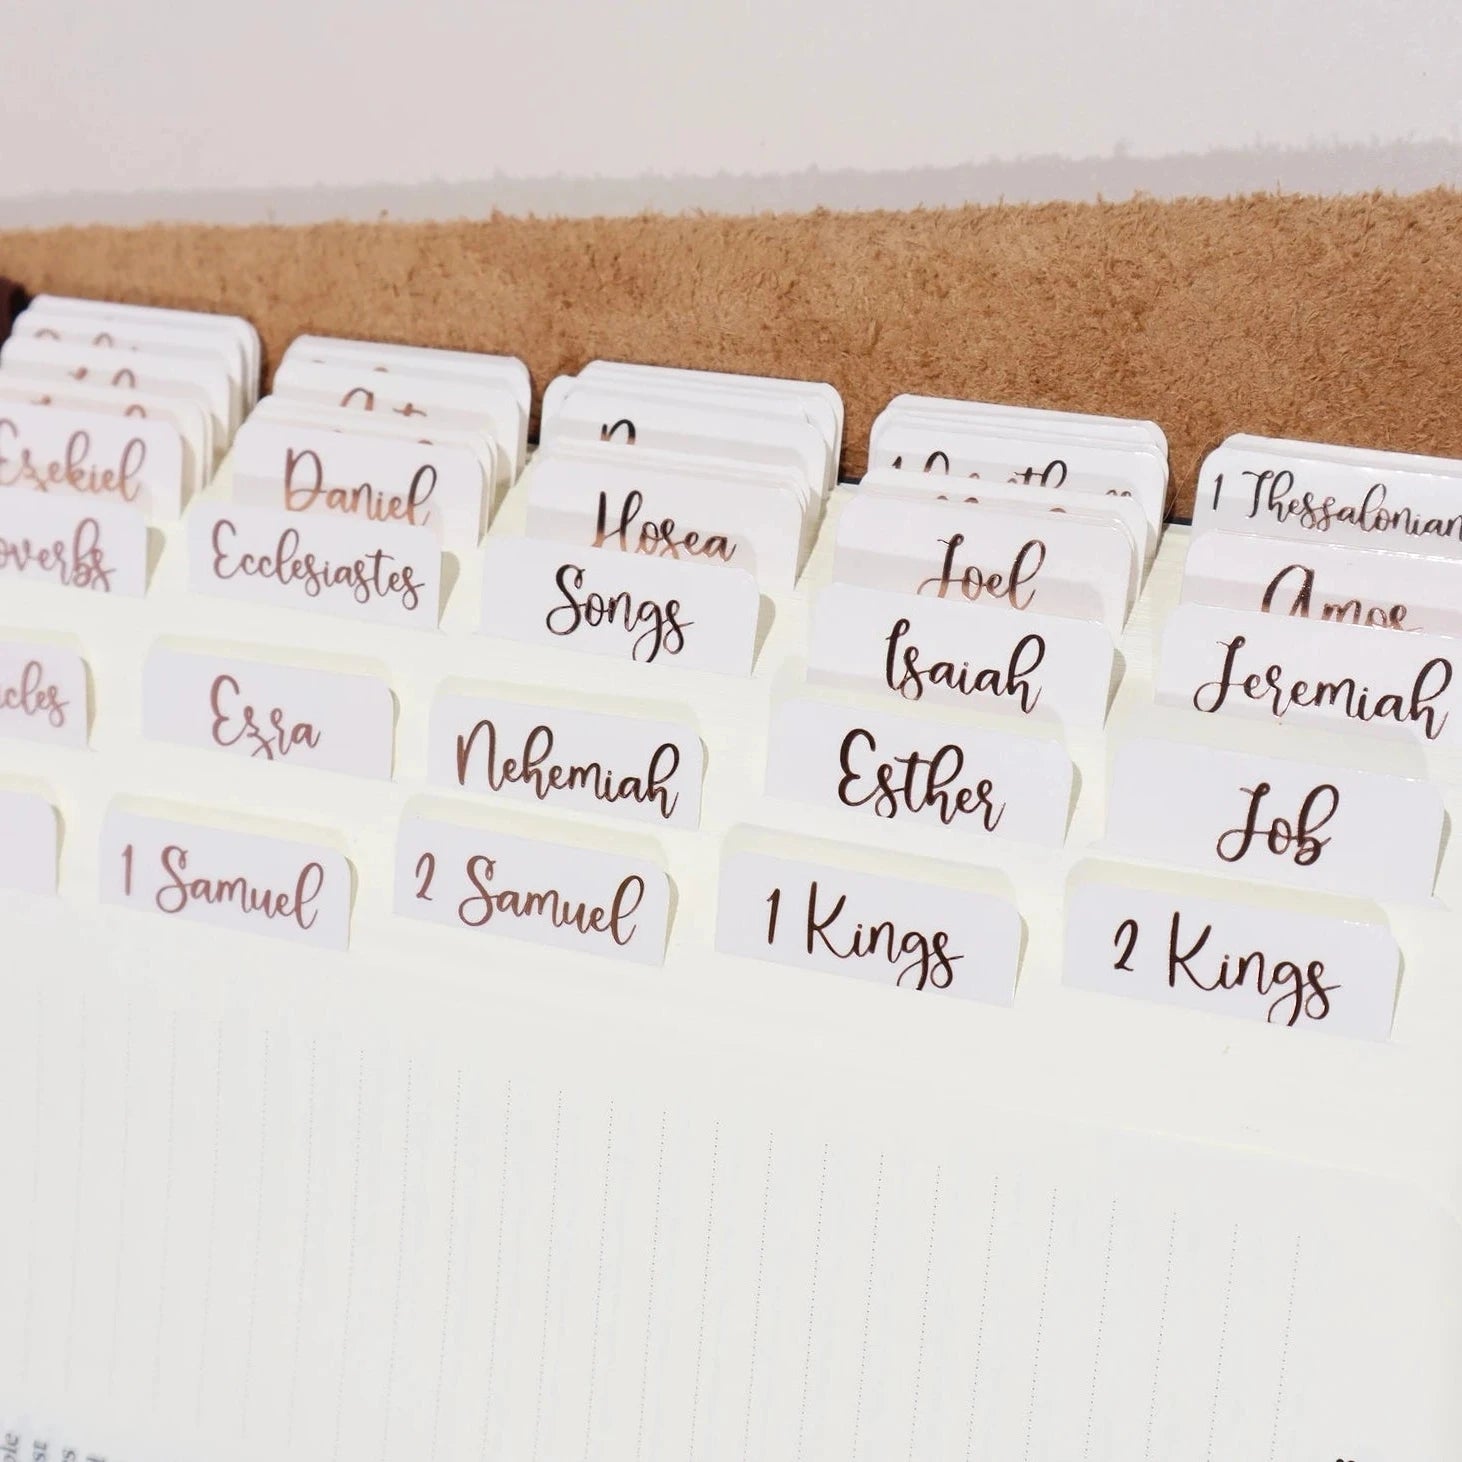 Ezekiel
Daniel
Hosea
Joel
Amos
1 Thessalonian
overbs
Ecclesiastes
Songs
Isaiah
Jeremiah
icles
Ezra
Nehemiah
Esther
Job
1 Samuel
2 Samuel
1 Kings
2 Kings